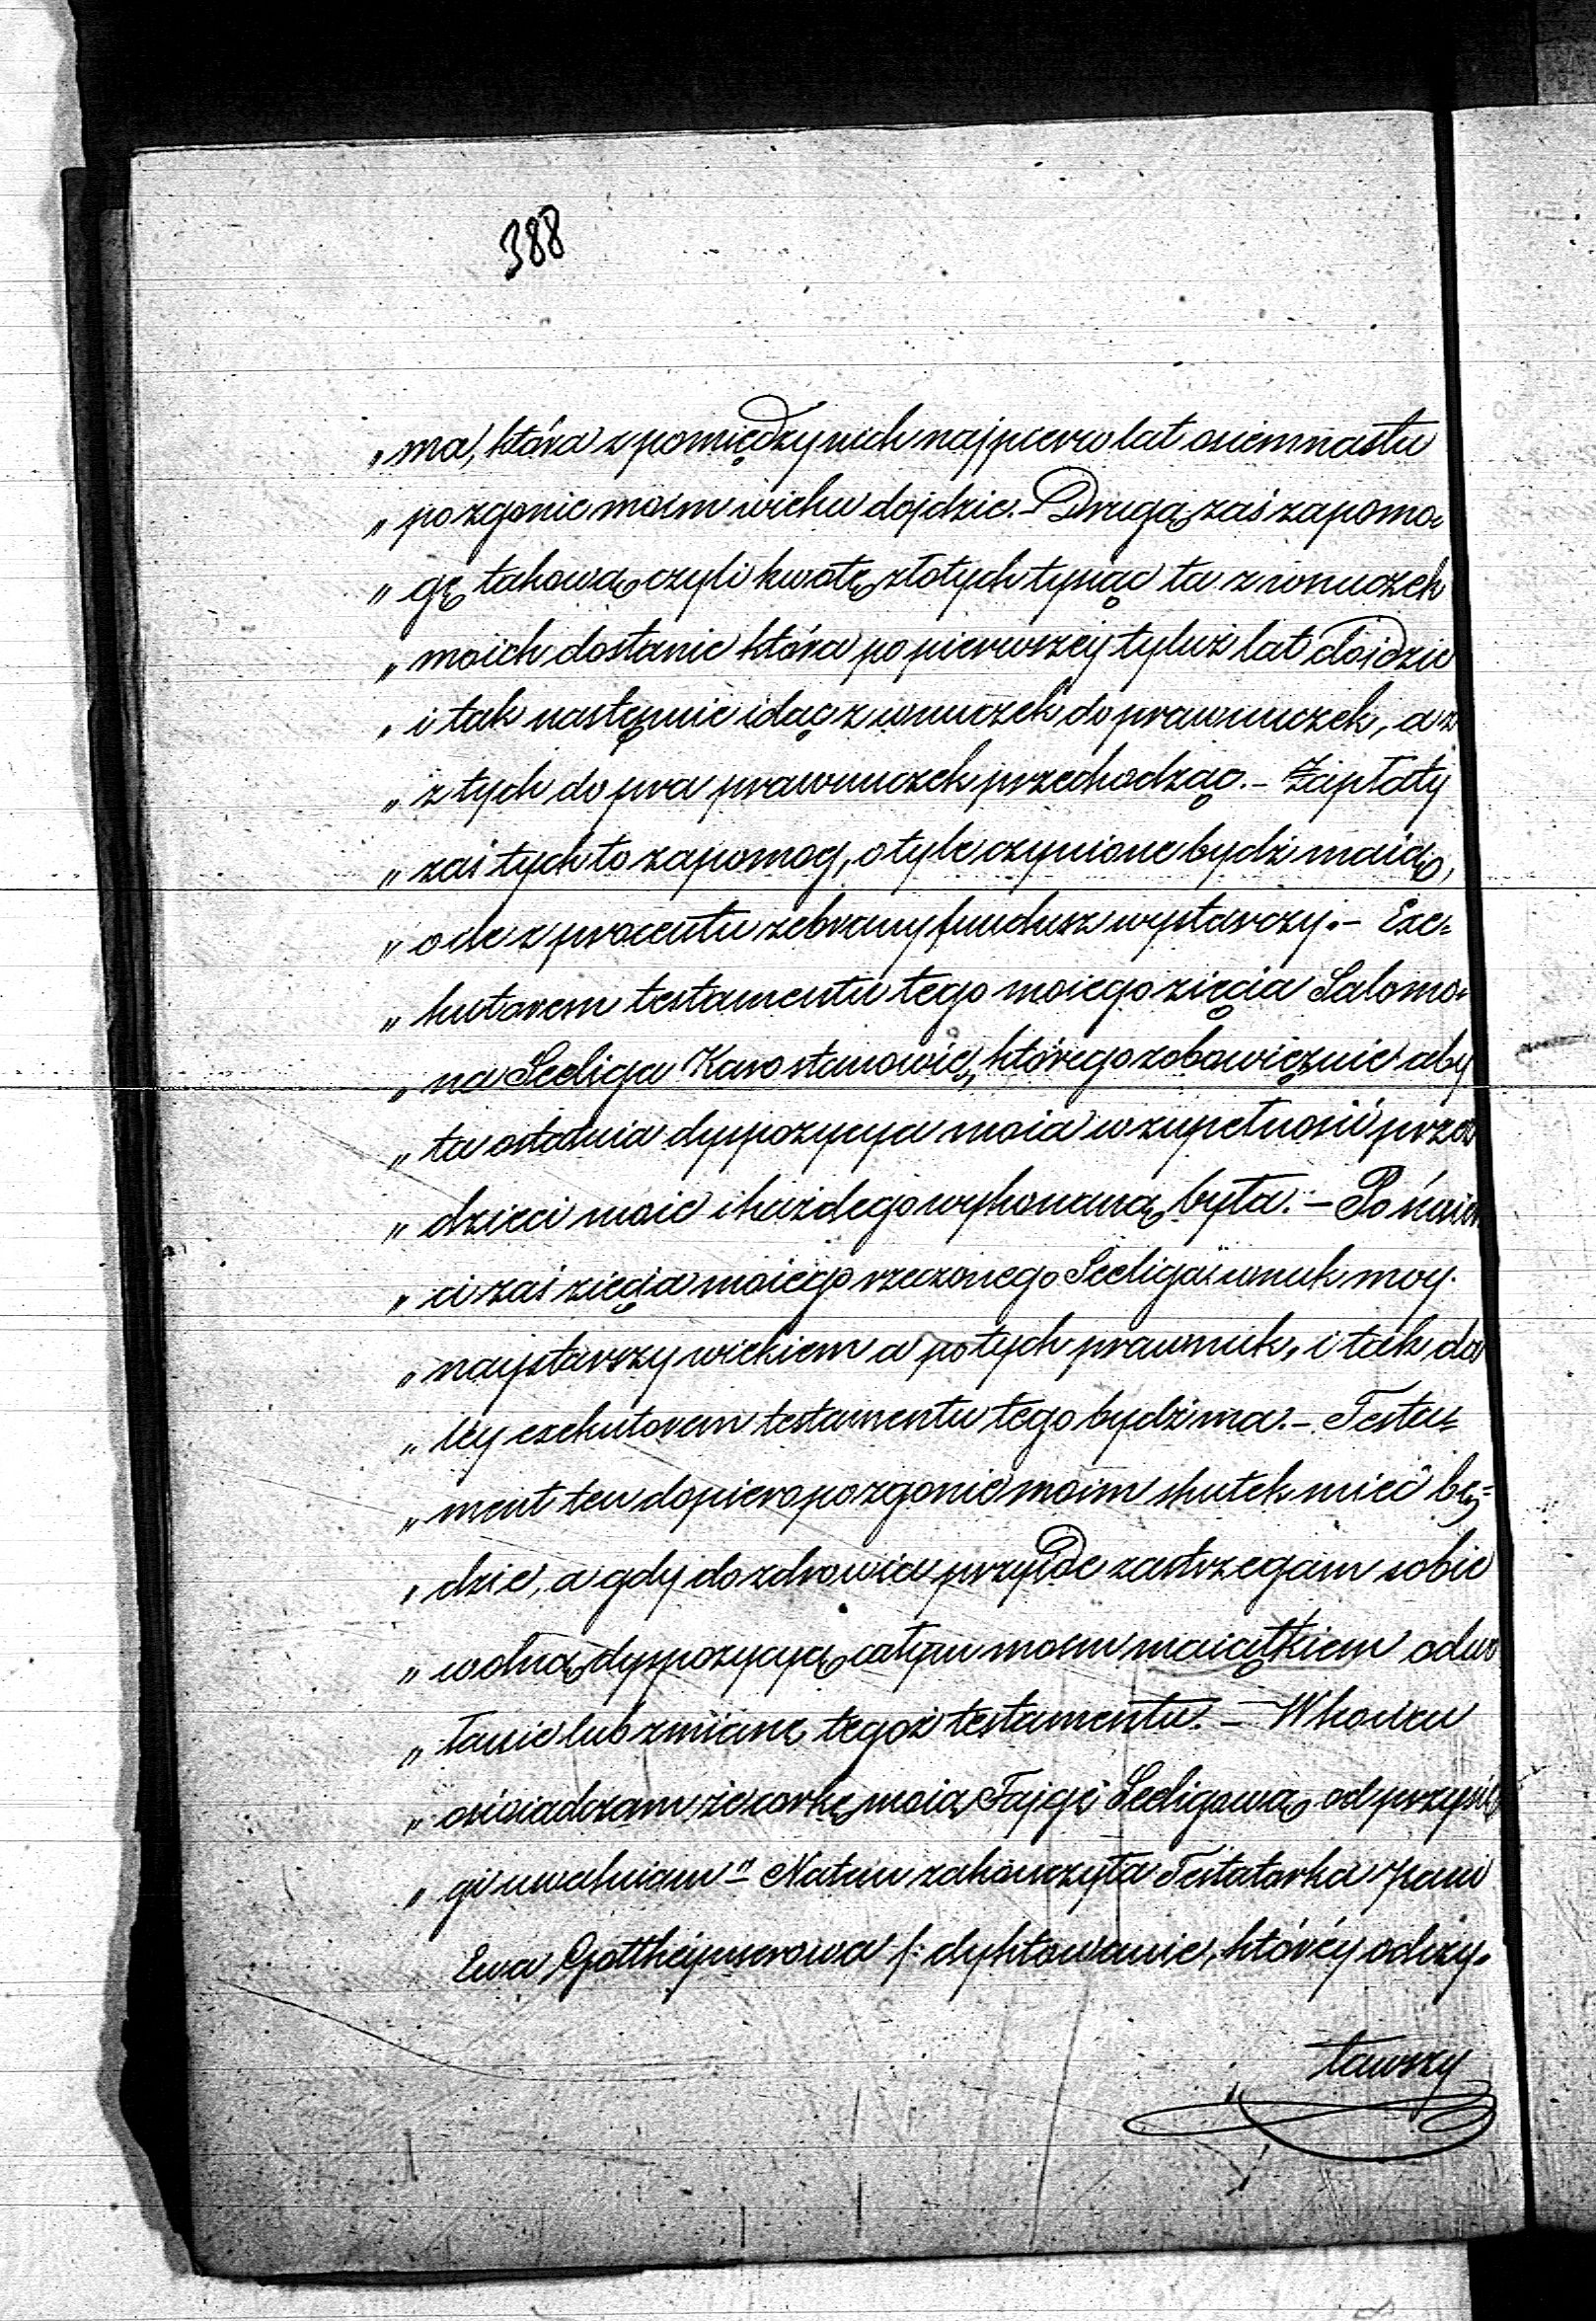 388
„ ma, która z pomiędzy nich najpierw lat osiemnastu
„ po zgonie moim wieku dojdzie. – Drugą zaś zapomo-
„ gę takową czyli kwotę złotych tysiąc ta z wnuczek
„ moich dostanie która po pierwszej tyluż lat doidzie
„ i tak następnie idąc z wnuczek do prawnuczek, a z
„ z tych do pra prawnuczek przechodząc. – Zapłaty
„ zaś tych to zapomog, o tyle czynione bydź maią,
„ o ile z procentu zebrany fundusz wystarczy. – Exe-
„ kutorem testamentu tego moiego zięcia Salomo-
„ na Seeliga Karo stanowię, którego zobowięznie aby
„ ta ostatnia dyspozycya moia w zupełności przez
„ dzieci moie i każdego wykonaną była. – Po śmier
„ ci zaś zięcia moiego rzeczonego Seeliga wnuk moy
„ naystarszy wiekiem a po tych prawnuk, i tak da
„ ley exekutorem testamentu tego bydź ma. – Testa-
„ ment ten dopiero po zgonie moim skutek mieć bę-
„ dzie, a gdy do zdrowia przyide zastrzegam sobie
„ wolną dyspozycyą całym moim maiątkiem odwo
„ łanie lub zmianę tegoż testamentu. – W końcu
„ oświadczam że corkę moią Fajgę Seeligową od przysię
„ gi uwalniam" – Na tem zakończyła Testatorka Pani
Ewa Gottheymerowa /: dyktowanie, któréy odczy-
tawszy